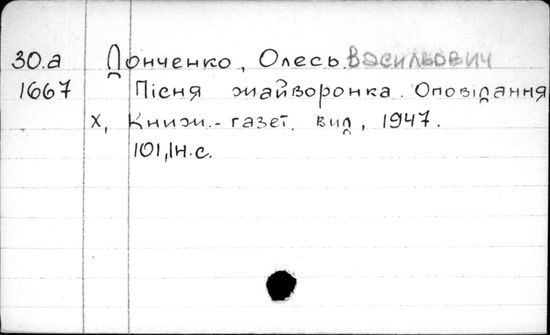 30.а Донченко, Олесь Васильович
1667 Пісня жайворонка. Оповідання
х, Книжк.-газет. вид, 1947.
101,1н.с.